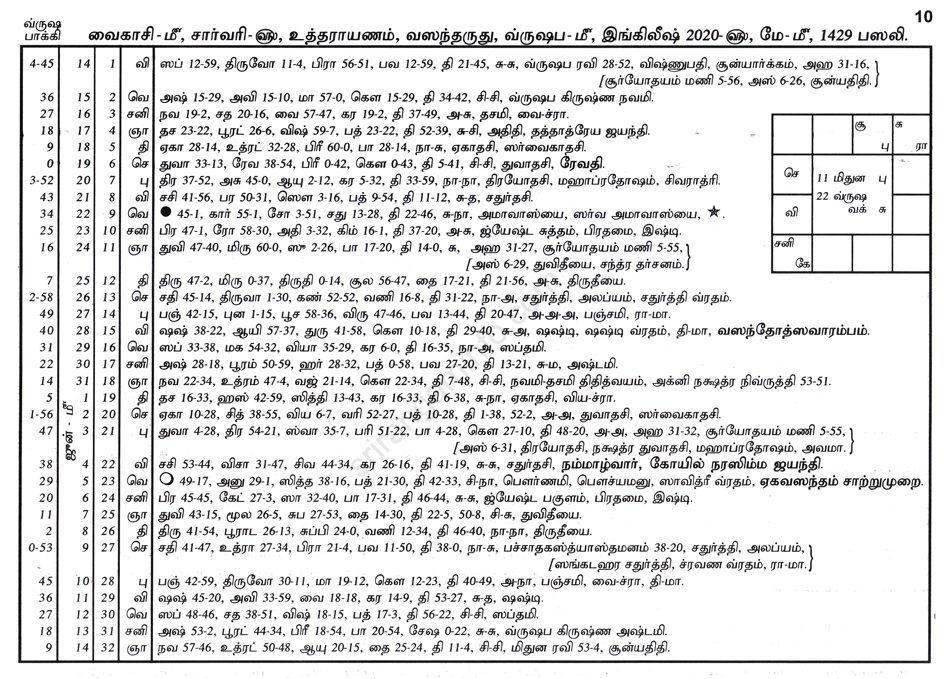 10
வ்ருஷ
பாக்கி
வைகாசி-மீ, சார்வரி-ஹு, உத்தராயணம், வஸந்தருது, வ்ருஷப-மீ, இங்கிலீஷ் 2020-ஹு, மே-மீ, 1429 பஸலி.
4-45 14 1 வி ஸப் 12-59, திருவோ 11-4, பிரா 56-51, பவ 12-59, தி 21-45, சு-சு, வ்ருஷப ரவி 28-52, விஷ்ணுபதி, சூன்யார்க்கம், அஹ 31-16,
[சூர்யோதயம் மணி 5-56, அஸ் 6-26, சூன்யதிதி.
36 15 2 வெ அஷ் 15-29, அவி 15-10, மா 57-0, கௌ 15-29, தி 34-42, சி-சி, வ்ருஷப கிருஷ்ண நவமி.
27 16 3 சனி நவ 19-2, சத 20-16, வை 57-47, கர 19-2, தி 37-49, அ-சு, தசமி, வை-ச்ரா.
18 17 4 ஞா தச 23-22, பூரட் 26-6, விஷ் 59-7, பத் 23-22, தி 52-39, சு-சி, அதிதி, தத்தாத்ரேய ஜயந்தி.
9 18 5 தி ஏகா 28-14, உத்ரட் 32-28, பிரீ 60-0, பா 28-14, நா-சு, ஏகாதசி, ஸர்வைகாதசி.
0 19 6 செ துவா 33-13, ரேவ 38-54, பிரீ 0-42, கௌ 0-43, தி 5-41, சி-சி, துவாதசி, ரேவதி.
3-52 20 7 பு திர 37-52, அசு 45-0, ஆயு 2-12, கர 5-32, தி 33-59, நா-நா, திரயோதசி, மஹாப்ரதோஷம், சிவராத்ரி.
43 21 8 வி சசி 41-56, பர 50-31, ஸௌ 3-16, பத் 9-54, தி 11-12, சு-த, சதுர்தசி.
34 22 9 வெ ● 45-1, கார் 55-1, சோ 3-51, சது 13-28, தி 22-46, சு-நா, அமாவாஸ்யை, ஸர்வ அமாவாஸ்யை, ★.
25 23 10 சனி பிர 47-1, ரோ 58-30, அதி 3-32, கிம் 16-1, தி 37-20, அ-சு, ஜ்யேஷ்ட சுத்தம், பிரதமை, இஷ்டி.
16 24 11 ஞா துவி 47-40, மிரு 60-0, ஸு 2-26, பா 17-20, தி 14-0, சு, அஹ 31-27, சூர்யோதயம் மணி 5-55,
[அஸ் 6-29, துவிதீயை, சந்த்ர தர்சனம்.
7 25 12 தி திரு 47-2, மிரு 0-37, திருதி 0-14, சூல 56-47, தை 17-21, தி 21-56, அ-சு, திருதீயை.
2-58 26 13 செ சதி 45-14, திருவா 1-30, கண் 52-52, வணி 16-8, தி 31-22, நா-அ, சதுர்த்தி, அலப்யம், சதுர்த்தி வ்ரதம்.
49 27 14 பு பஞ் 42-15, புன 1-15, பூச 58-36, விரு 47-46, பவ 13-44, தி 20-47, அ-அ-அ, பஞ்சமி, ரா-மா.
40 28 15 வி ஷஷ் 38-22, ஆயி 57-37, துரு 41-58, கௌ 10-18, தி 29-40, சு-அ, ஷஷ்டி, ஷஷ்டி வ்ரதம், தி-மா, வஸந்தோத்ஸவாரம்பம்.
31 29 16 வெ ஸப் 33-38, மக 54-32, வியா 35-29, கர 6-0, தி 16-35, நா-அ, ஸப்தமி.
22 30 17 சனி அஷ் 28-18, பூரம் 50-59, ஹர் 28-32, பத் 0-58, பவ 27-20, தி 13-21, சு-ம, அஷ்டமி.
14 31 18 ஞா நவ 22-34, உத்ரம் 47-4, வஜ் 21-14, கௌ 22-34, தி 7-48, சி-சி, நவமி-தசமி திதித்வயம், அக்னி நக்ஷத்ர நிவ்ருத்தி 53-51.
5 1 19 தி தச 16-33, ஹஸ் 42-59, ஸித்தி 13-43, கர 16-33, தி 6-38, சு-நா, ஏகாதசி, விய-ச்ரா.
1-56 ஜூன்-மீ 2 20 செ ஏகா 10-28, சித் 38-55, விய 6-7, வரி 52-27, பத் 10-28, தி 1-38, 52-2, அ-அ, துவாதசி, ஸர்வைகாதசி.
47 3 21 பு துவா 4-28, திர 54-21, ஸ்வா 35-7, பரி 51-22, பா 4-28, கௌ 27-10, தி 48-20, அ-அ, அஹ 31-32, சூர்யோதயம் மணி 5-55,
[அஸ் 6-31, திரயோதசி, நக்ஷத்ர துவாதசி, மஹாப்ரதோஷம், அவமா.
38 4 22 வி சசி 53-44, விசா 31-47, சிவ 44-34, கர 26-16, தி 41-19, சு-சு, சதுர்தசி, நம்மாழ்வார், கோயில் நரஸிம்ம ஜயந்தி.
29 5 23 வெ ○ 49-17, அனு 29-1, ஸித்த 38-16, பத் 21-30, தி 42-33, சி-நா, பௌர்ணமி, பௌச்யமனு, ஸாவித்ரீ வ்ரதம், ஏகவஸந்தம் சாற்றுமுறை.
20 6 24 சனி பிர 45-45, கேட் 27-3, ஸா 32-40, பா 17-31, தி 46-44, சு-சு, ஜ்யேஷ்ட பகுளம், பிரதமை, இஷ்டி.
11 7 25 ஞா துவி 43-15, மூல 26-5, சுப 27-53, தை 14-30, தி 22-5, 50-8, சி-சு, துவிதீயை.
2 8 26 தி திரு 41-54, பூராட 26-13, சுப்பி 24-0, வணி 12-34, தி 46-40, நா-நா, திருதீயை.
0-53 9 27 செ சதி 41-47, உத்ரா 27-34, பிரா 21-4, பவ 11-50, தி 38-0, நா-சு, பச்சாதகஸ்த்யாஸ்தமனம் 38-20, சதுர்த்தி, அலப்யம்,
[ஸங்கடஹர சதுர்த்தி, ச்ரவண வ்ரதம், ரா-மா.
45 10 28 பு பஞ் 42-59, திருவோ 30-11, மா 19-12, கௌ 12-23, தி 40-49, அ-நா, பஞ்சமி, வை-ச்ரா, தி-மா.
36 11 29 வி ஷஷ் 45-20, அவி 33-59, வை 18-18, கர 14-9, தி 53-27, சு-த, ஷஷ்டி.
27 12 30 வெ ஸப் 48-46, சத 38-51, விஷ் 18-15, பத் 17-3, தி 56-22, சி-சி, ஸப்தமி.
18 13 31 சனி அஷ் 53-2, பூரட் 44-34, பிரீ 18-54, பா 20-54, சேஷ 0-22, சு-சு, வ்ருஷப கிருஷ்ண அஷ்டமி.
9 14 32 ஞா நவ 57-46, உத்ரட் 50-48, ஆயு 20-15, தை 25-24, தி 11-4, சி-சி, மிதுன ரவி 53-4, சூன்யதிதி.
சூ பு
சு ரா
செ
11 மிதுன பு
22 வ்ருஷ
வக் சு
வி
சனி
கே